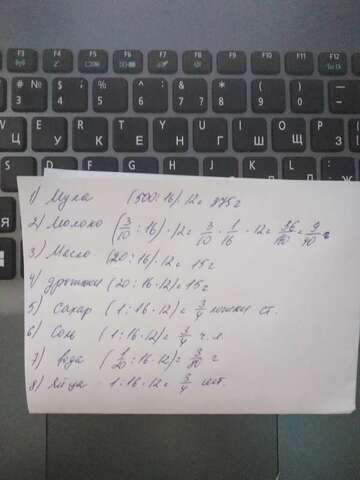 F3 F4 F5 F6 F7 F8 F9 F10 F11 F12
# № 3 $ ; 4 % 5 ^ : 6 & ? 7 * 8 ( 9 ) 0 _ -
E У R К T Е Y Н U Г I Ш O Щ P З
1) Мука (500:16)·12= 375г
2) Молоко (3/10 : 16)·12= 3/10 · 1/16 · 12 = 36/160 = 9/40 г
3) Масло (20:16)·12= 15г
4) дрожжи (20:16·12)=15г
5) Сахар (1:16·12)= 3/4 ложки ст.
6) Соль (1:16·12)= 3/4 ч.л
7) вода (1/20:16·12)= 3/80 г
8) Яйца 1:16·12= 3/4 шт.